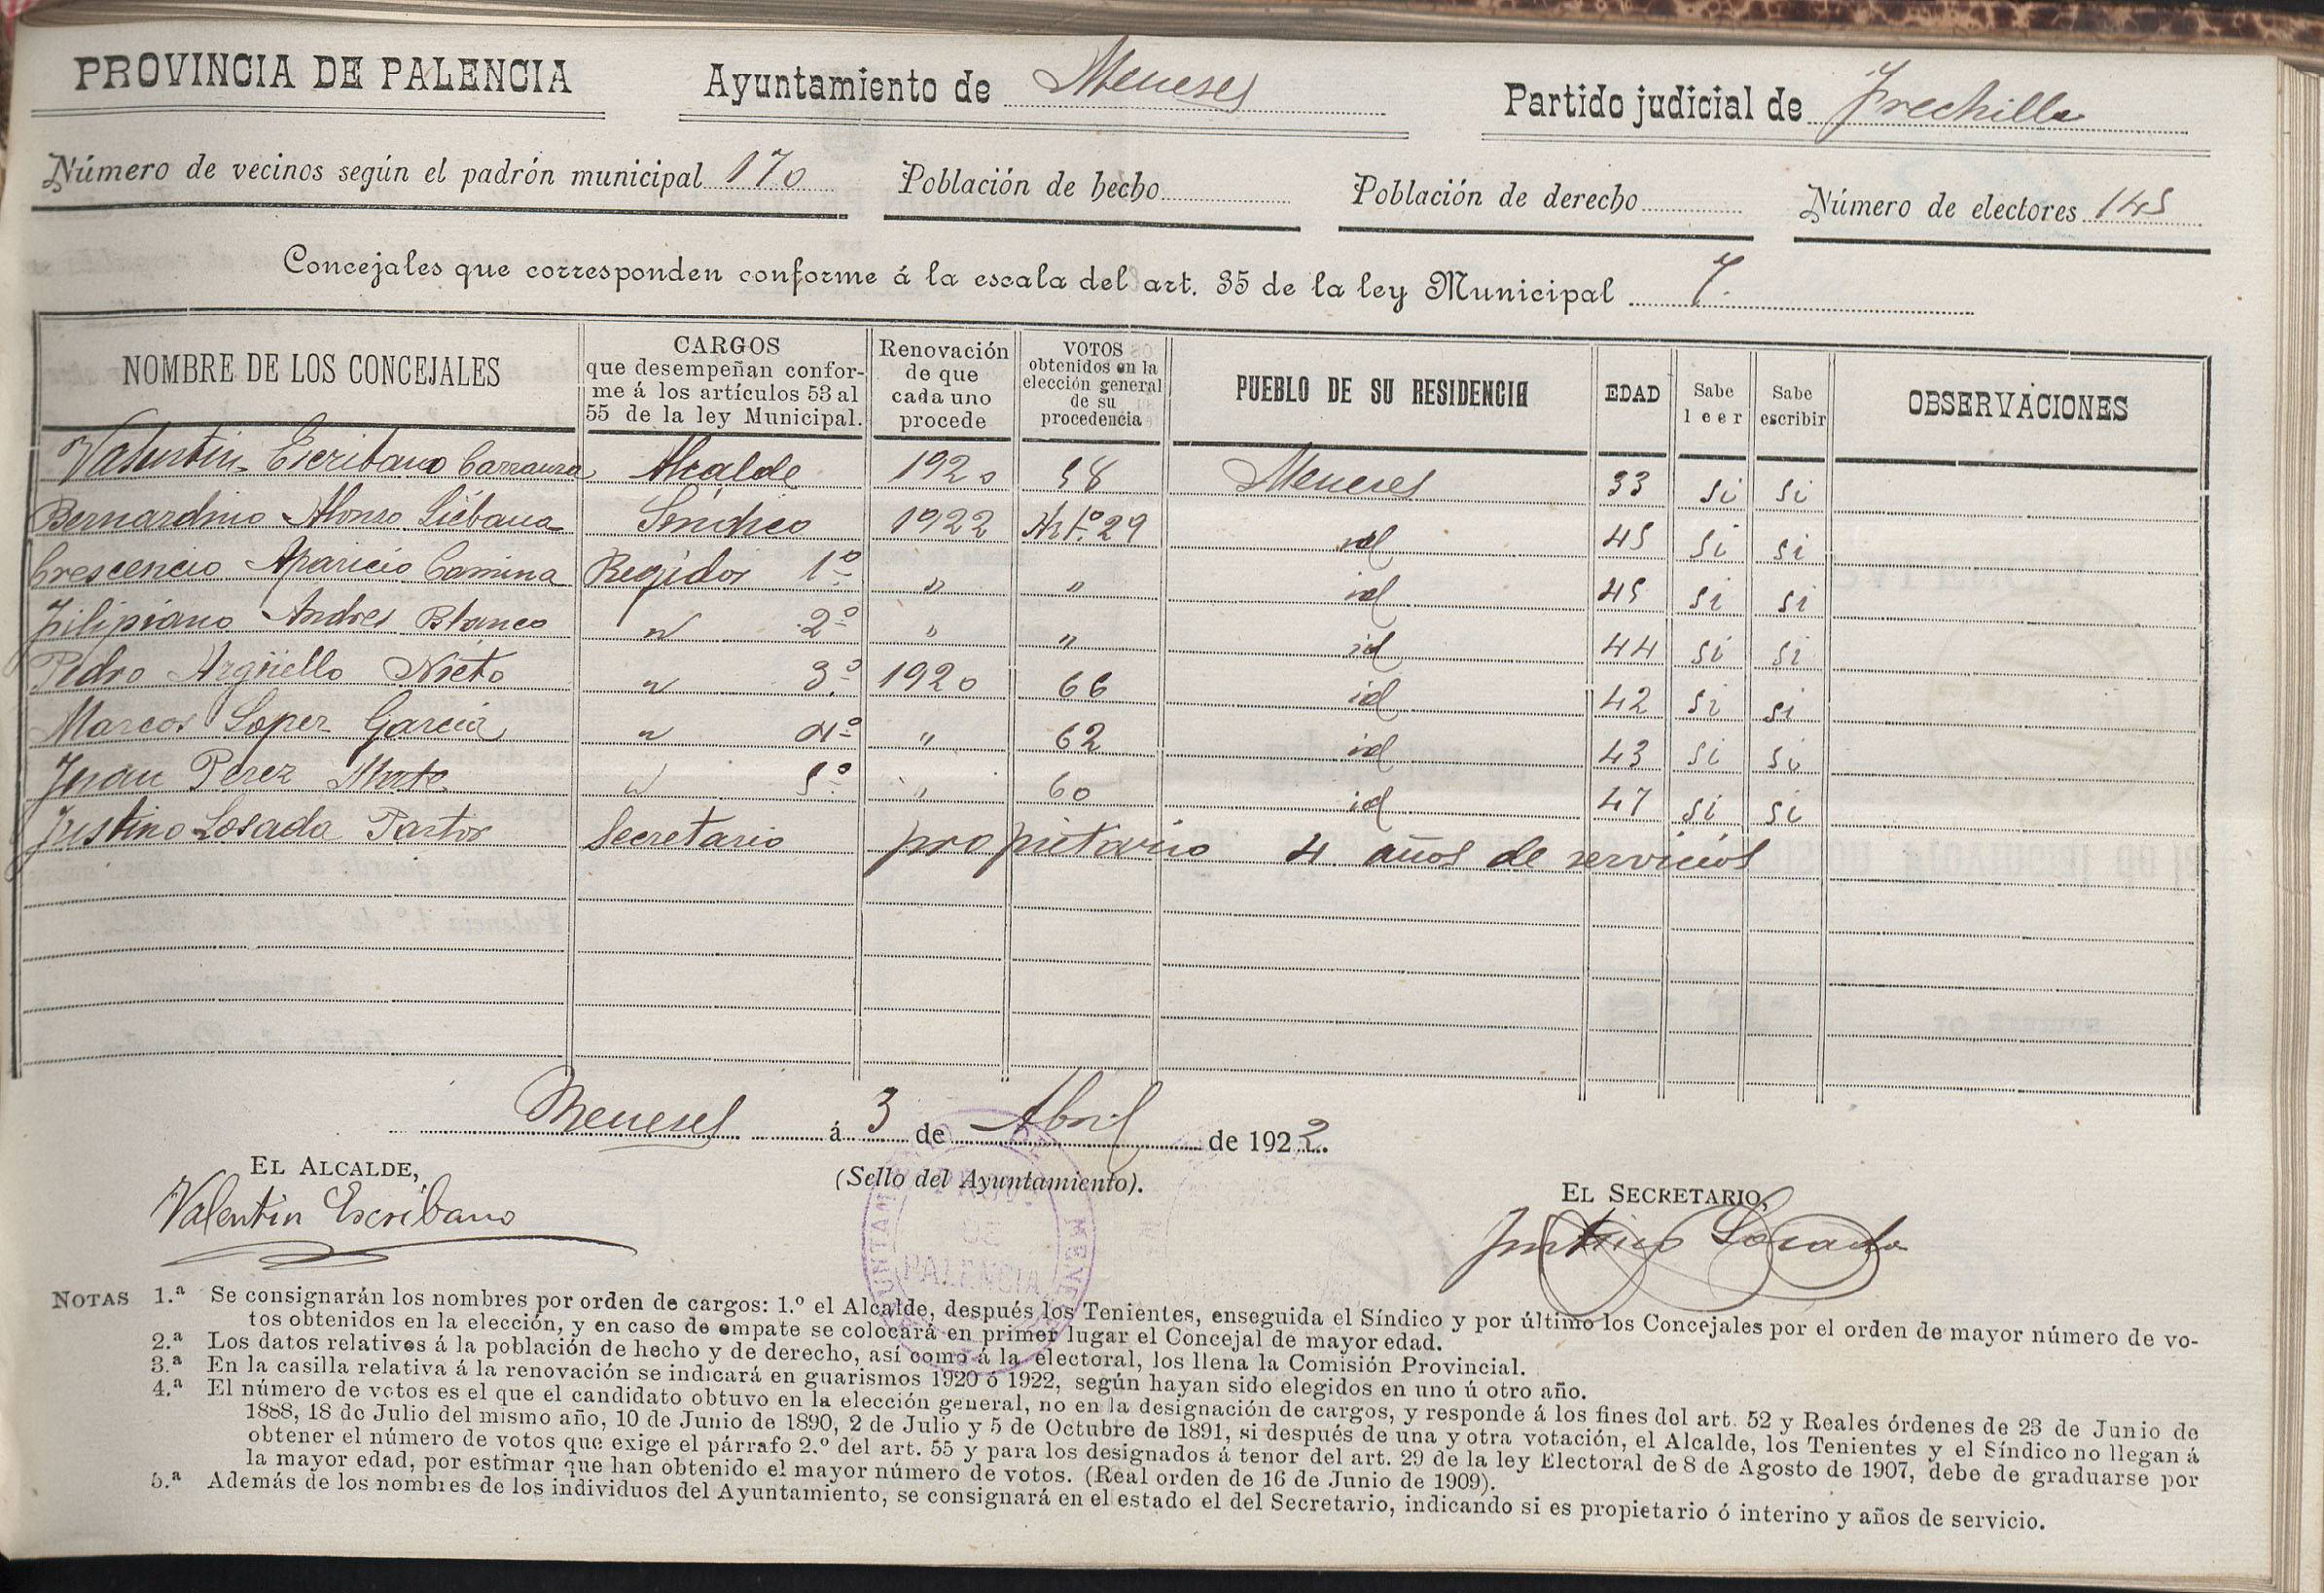 PROVINCIA DE PALENCIA Ayuntamiento de Meneses Partido judicial de Frechilla
Número de vecinos según el padrón municipal 170 Población de hecho Población de derecho Número de electores 145
Concejales que corresponden conforme á la escala del art. 35 de la ley Municipal 7.
NOMBRE DE LOS CONCEJALES CARGOS que desempeñan confor-me á los artículos 53 al 55 de la ley Municipal. Renovación de que cada uno procede VOTOS obtenidos en la elección general de su procedencia PUEBLO DE SU RESIDENCIA EDAD Sabe leer Sabe escribir OBSERVACIONES
Valentin Escribano Alcalde 1920 58 Meneses 33 si si
Bernardino Alonso Liébana Síndico 1922 Art.º 29 id 45 si si
Crescencio Aparicio Camina Regidor 1º " " id 45 si si
Filipiano Andres Blanco " 2º " " id 44 si si
Pedro Argüello Nieto " 3º 1920 66 id 42 si si
Marcos Loper Garcia " 4º " 62 id 43 si si
Juan Perez " 5º " 60 id 47 si si
Justino Losada Pastor Secretario propietario 4 años de servicios
Meneses á 3 de Abril de 1922.
EL ALCALDE, (Sello del Ayuntamiento). EL SECRETARIO,
Valentin Escribano Justino Losada
PROV. DE PALENCIA
NOTAS 1.ª Se consignarán los nombres por orden de cargos: 1.º el Alcalde, después los Tenientes, enseguida el Síndico y por último los Concejales por el orden de mayor número de vo-
tos obtenidos en la elección, y en caso de empate se colocará en primer lugar el Concejal de mayor edad.
2.ª Los datos relativos á la población de hecho y de derecho, así como á la electoral, los llena la Comisión Provincial.
3.ª En la casilla relativa á la renovación se indicará en guarismos 1920 ó 1922, según hayan sido elegidos en uno ú otro año.
4.ª El número de votos es el que el candidato obtuvo en la elección general, no en la designación de cargos, y responde á los fines del art. 52 y Reales órdenes de 23 de Junio de
1888, 18 de Julio del mismo año, 10 de Junio de 1890, 2 de Julio y 5 de Octubre de 1891, si después de una y otra votación, el Alcalde, los Tenientes y el Síndico no llegan á
obtener el número de votos que exige el párrafo 2.º del art. 55 y para los designados á tenor del art. 29 de la ley Electoral de 8 de Agosto de 1907, debe de graduarse por
la mayor edad, por estimar que han obtenido el mayor número de votos. (Real orden de 16 de Junio de 1909).
5.ª Además de los nombres de los individuos del Ayuntamiento, se consignará en el estado el del Secretario, indicando si es propietario ó interino y años de servicio.